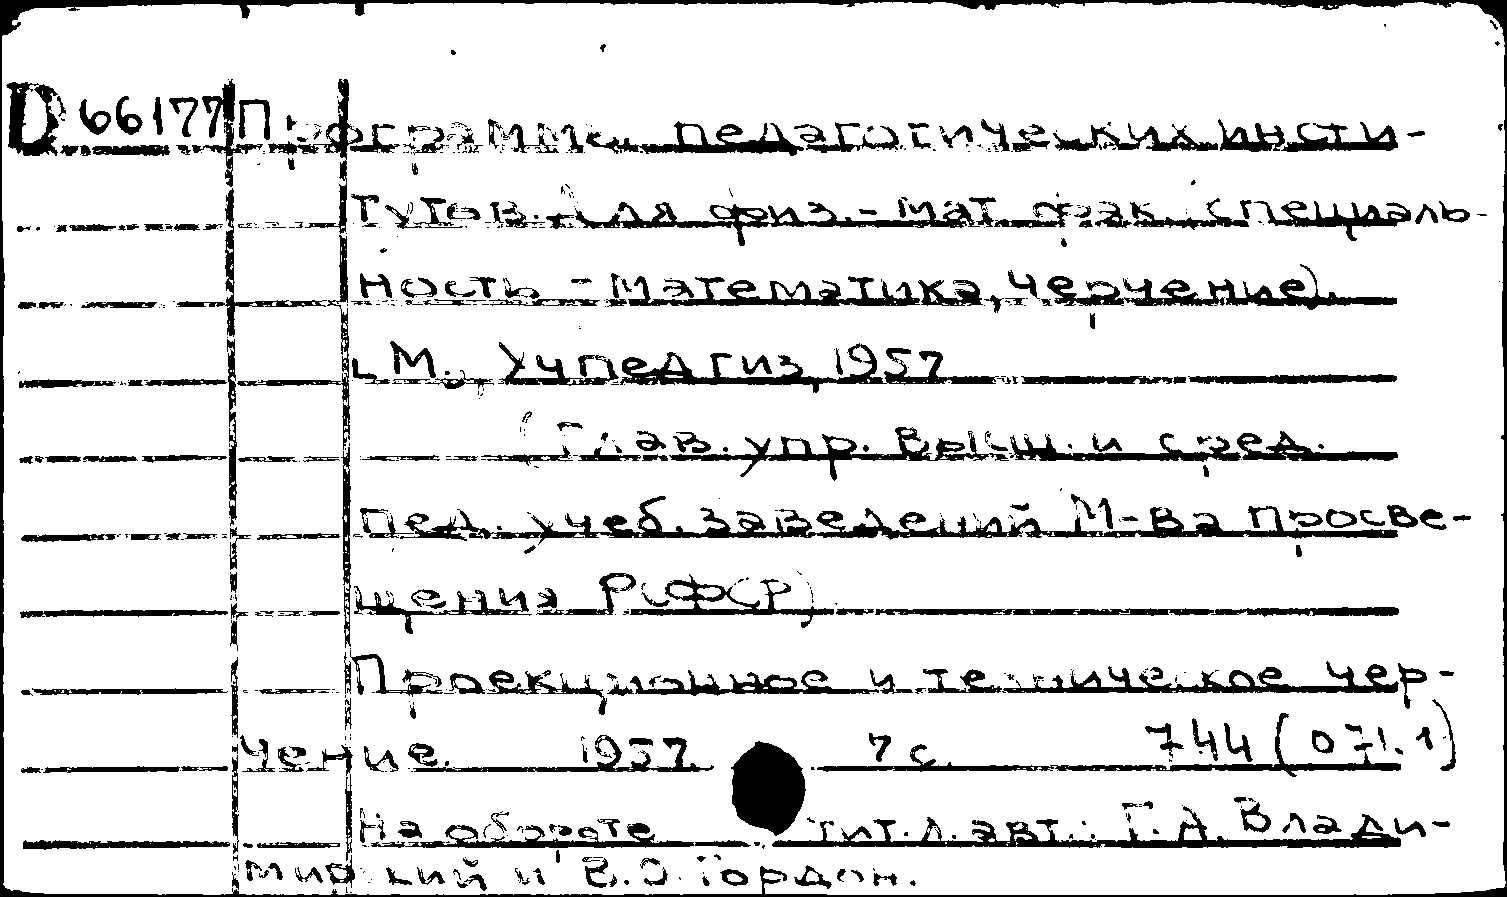 D 66177 Программы педагогических инсти-
тутов. (Для физ.-мат. фак. специаль-
ность - математика, черчение).
М., Учпедгиз, 1957
(Глав. упр. высш. и сред.
пед. учеб. заведений М-ва просве-
щения РСФСР)
Проекционное и техническое чер-
чение. 1957. 7 с. 744 (071.1)
На обороте тит. л. авт.: Г.А. Влади-
мирский и В.О. Гордон.